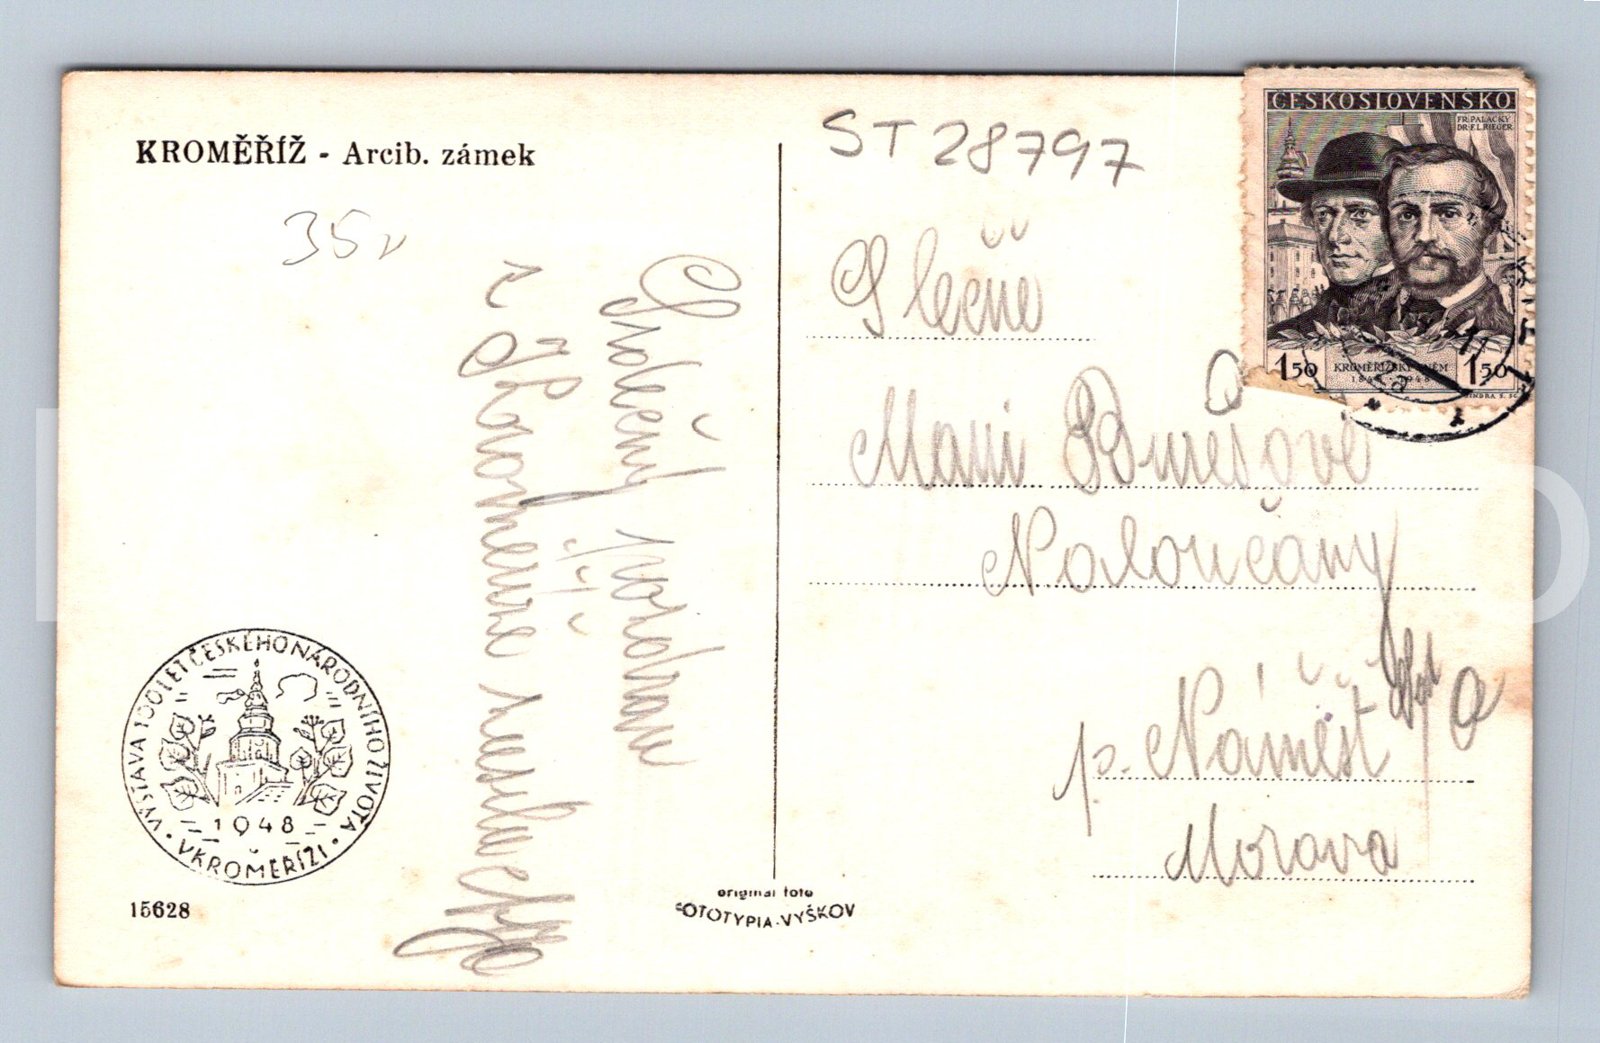 KROMĚŘÍŽ - Arcib. zámek
35,
ST 28797
ČESKOSLOVENSKO
FR. PALACKÝ
DR. F. L. RIEGER
1.50 KROMĚŘÍŽSKÝ SNĚM 1.50
1848 1948
Srdečný pozdrav
z Kroměříže zasílá
Slečně
Maní
Naloučany
p. Náměšť
Morava
VÝSTAVA 100 LET ČESKÉHO NÁRODNÍHO ŽIVOTA
1948
V KROMĚŘÍŽI
15628
original foto
FOTOTYPIA-VYŠKOV